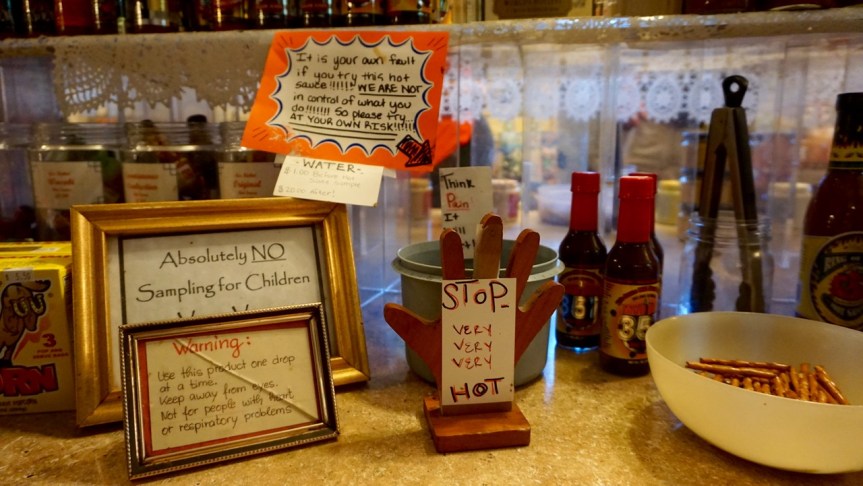 It is your own fault
if you try this hot
sauce !!!!!!! WE ARE NOT
in control of what you
do!!!!!!! So please try...
AT YOUR OWN RISK!!!!!
-WATER-
$1.00 Before
$20.00 After!
Think
Pain
It
Original
Absolutely NO
Sampling for Children
Warning:
Use this product one drop
at a time.
Keep away from eyes.
Not for people with heart
or respiratory problems
STOP
VERY
VERY
VERY
HOT
3
ORN
357
35